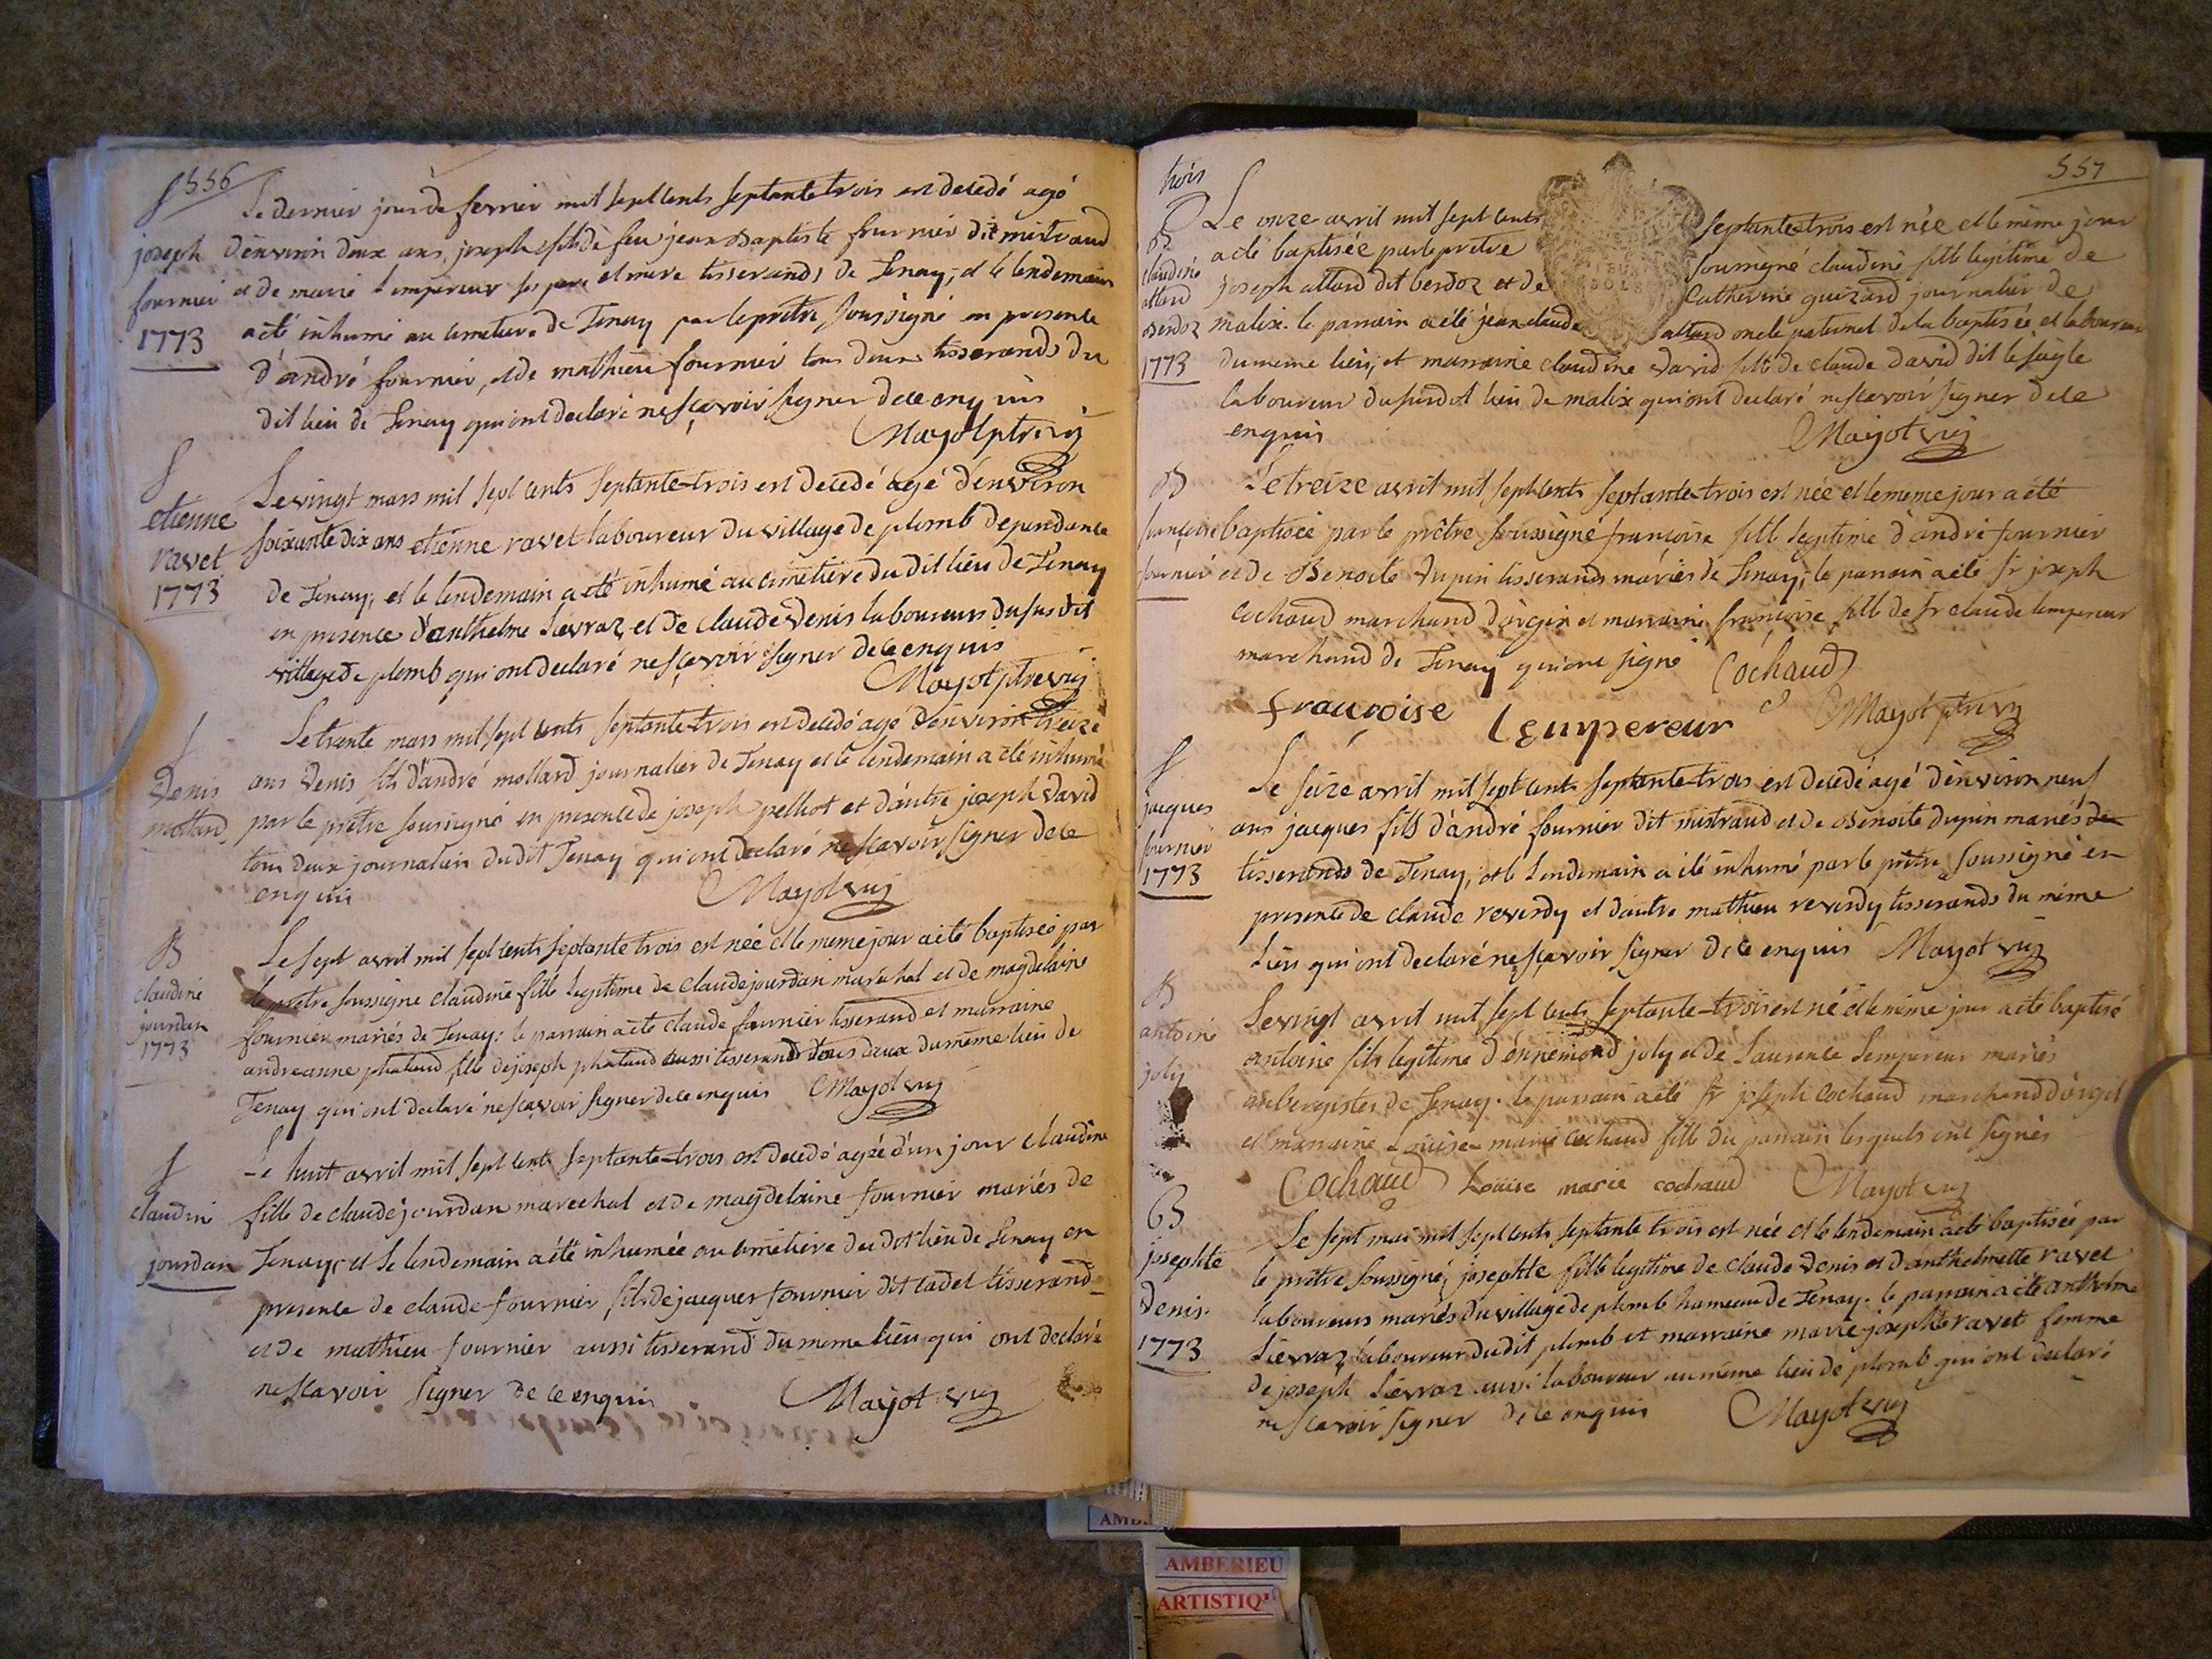 556
S
joseph
fournier
1773
Le dernier jour de fevrier mil sept cents septante trois est decedé agé
d'environ deux ans, joseph fils de feu jean Baptiste fournier dit mistraud
et de marie Lempereur ses pere et mere tisserands de Tenay, et le lendemain
a été inhumé au cimetiere de Tenay par le prêtre soussigné en presence
d'andré fournier, et de mathieu fournier tous deux tisserands du
dit lieu de Tenay qui ont declaré ne sçavoir signer de ce enquis
Mayot ptre vic
S
etienne
ravet
1773
Le vingt mars mil sept cents septante-trois est decedé agé d'environ
soixante dix ans etienne ravet laboureur du village de plomb dependance
de Tenay, et le lendemain a été inhumé au cimetiere du dit lieu de Tenay
en presence d'anthelme Lievraz et de claude Denis laboureurs du susdit
village de plomb qui ont declaré ne sçavoir signer de ce enquis
Mayot ptre vic
S
Denis
mollard
Le trente mars mil sept cents septante-trois est decedé agé d'environ treize
ans Denis fils d'andré mollard journalier de Tenay et le lendemain a été inhumé
par le prêtre soussigné en presence de joseph pelliot et d'autre joseph David
tous deux journaliers dudit Tenay qui ont declaré ne scavoir signer de ce
enquis
Mayot vic
B
claudine
jourdan
1773
Le sept avril mil sept cents septante trois est née et le meme jour a été baptisée par
le prêtre soussigné claudine fille legitime de claude jourdan marechal et de magdelaine
fournier mariés de Tenay: le parrain a été claude fournier tisserand et marraine
andreanne phataud fille de joseph phataud aussi tisserand tous deux du même lieu de
Tenay qui ont declaré ne sçavoir signer de ce enquis Mayot vic
S
claudine
jourdan
Le huit avril mil sept cents septante-trois est decedé agée d'un jour claudine
fille de claude jourdan marechal et de magdelaine fournier mariés de
Tenay, et le lendemain a été inhumée au cimetiere du dit lieu de Tenay en
presence de claude fournier fils de jacques fournier dit cadet tisserand
et de mathieu fournier aussi tisserand du meme lieu qui ont declaré
ne scavoir signer de ce enquis Mayot vic
557
trois
B
claudine
allard
Berdoz
1773
Le onze avril mil sept cents septante-trois est née et le même jour
a été baptisée par le prêtre soussigné claudine fille legitime de
joseph allard dit berdoz et de Catherine guizard journalier de
malix. le parrain a été jean claude allard oncle paternel de la baptisée et laboureur
du meme lieu, et marraine claudine David fille de claude David dit le sage
laboureur du susdit lieu de malix qui ont declaré ne scavoir signer de ce
enquis
Mayot vic
B
françoise
fournier
Le treize avril mil sept cents septante-trois est née et le meme jour a été
baptisée par le prêtre soussigné françoise fille legitime d'andré fournier
et de Benoite Dupin tisserands mariés de Tenay, le parrain a été Sr joseph
cochaud marchand d'orgin et marraine françoise fille de Sr claude Lempereur
marchand de Tenay qui ont signé Cochaud
françoise Lempereur Mayot ptre vic
S
jacques
fournier
1773
Le seize avril mil sept cents septante-trois est decedé agé d'environ neuf
ans jacques fils d'andré fournier dit mistraud et de Benoite dupin mariés de
tisserands de Tenay, et le lendemain a été inhumé par le prêtre soussigné en
presence de claude reverdy et d'autre mathieu reverdy tisserands du même
lieu qui ont declaré ne sçavoir signer de ce enquis Mayot vic
B
antoine
joly
Le vingt avril mil sept cents septante-trois est né et le même jour a été baptisé
antoine fils legitime d'ennemond joly et de Laurence Lempereur mariés
aubergistes de Tenay. le parrain a été Sr joseph cochaud marchand d'orgit
et marraine Louise marie cochaud fille du parrain lesquels ont signés
Cochaud Loüise marie cochaud Mayot vic
B
josephte
Denis
1773
Le sept mai mil sept cents septante trois est née et le lendemain a été baptisée par
le prêtre soussigné, josephte fille legitime de claude Denis et d'anthelmette ravet
laboureurs mariés du village de plomb hameau de Tenay. le parrain a été anthelme
Lievraz laboureur dudit plomb et marraine marie josephte ravet femme
de joseph Lievraz aussi laboureur au même lieu de plomb qui ont declaré
ne scavoir signer de ce enquis Mayot vic
AMBERIEU
ARTISTIQ